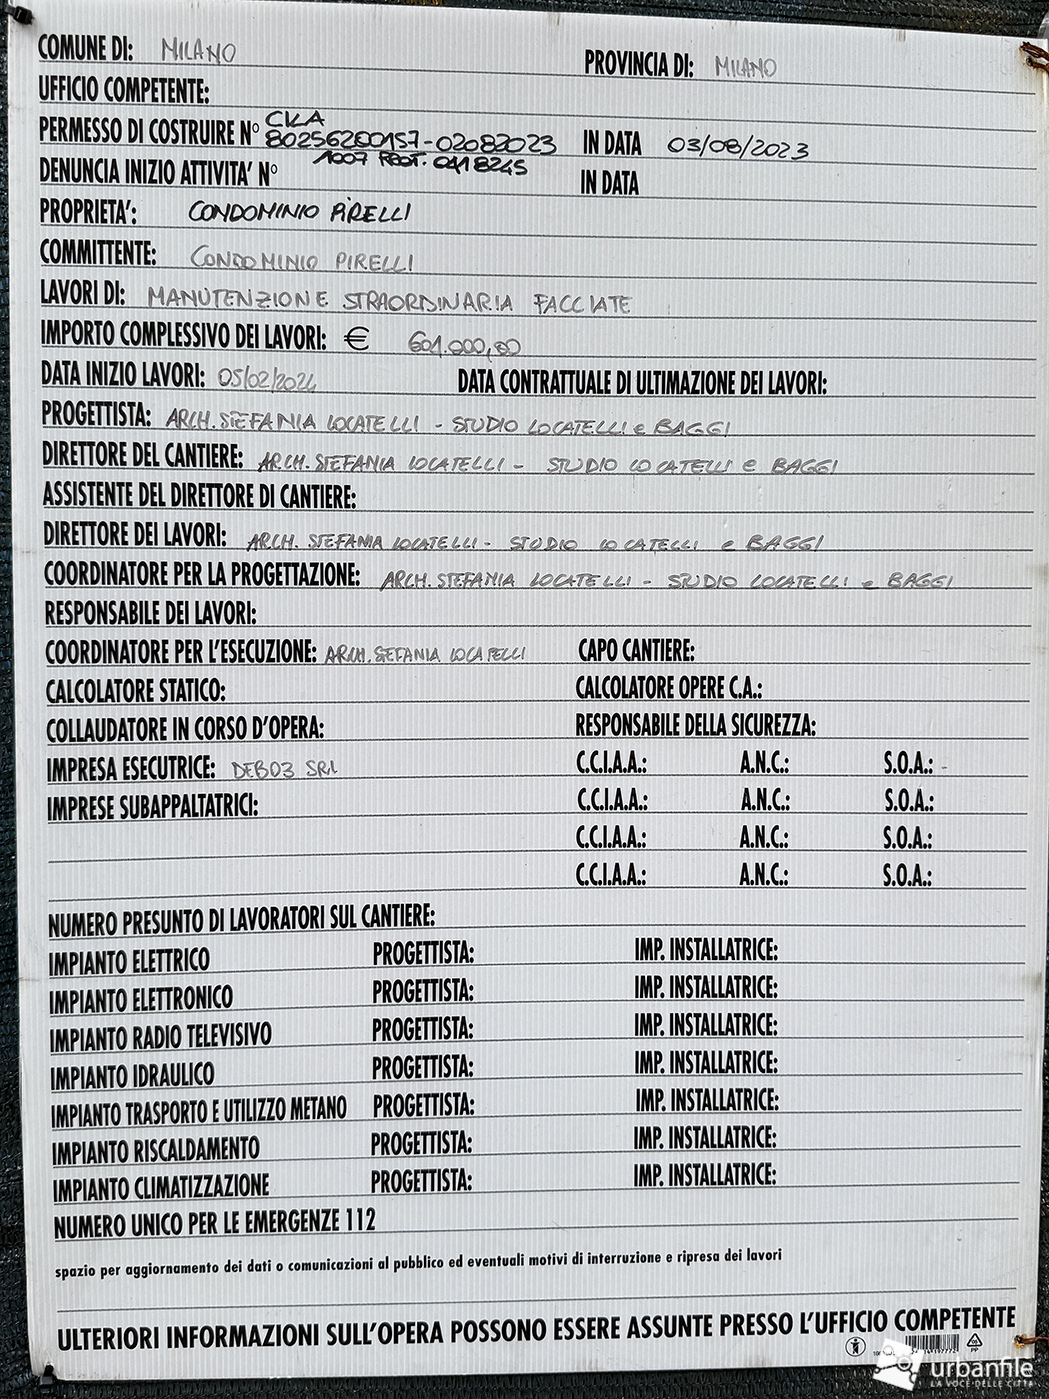 COMUNE DI: MILANO PROVINCIA DI: MILANO
UFFICIO COMPETENTE:
CILA
PERMESSO DI COSTRUIRE N° 80256200157-02082023 IN DATA 03/08/2023
1007 PROT. 0418245
DENUNCIA INIZIO ATTIVITA' N° IN DATA
PROPRIETA': CONDOMINIO PIRELLI
COMMITTENTE: CONDOMINIO PIRELLI
LAVORI DI: MANUTENZIONE STRAORDINARIA FACCIATE
IMPORTO COMPLESSIVO DEI LAVORI: € 601.000,00
DATA INIZIO LAVORI: 05/02/2024 DATA CONTRATTUALE DI ULTIMAZIONE DEI LAVORI:
PROGETTISTA: ARCH. STEFANIA LOCATELLI - STUDIO LOCATELLI e BAGGI
DIRETTORE DEL CANTIERE: ARCH. STEFANIA LOCATELLI - STUDIO LOCATELLI e BAGGI
ASSISTENTE DEL DIRETTORE DI CANTIERE:
DIRETTORE DEI LAVORI: ARCH. STEFANIA LOCATELLI - STUDIO LOCATELLI e BAGGI
COORDINATORE PER LA PROGETTAZIONE: ARCH. STEFANIA LOCATELLI - STUDIO LOCATELLI e BAGGI
RESPONSABILE DEI LAVORI:
COORDINATORE PER L'ESECUZIONE: ARCH. STEFANIA LOCATELLI CAPO CANTIERE:
CALCOLATORE STATICO: CALCOLATORE OPERE C.A.:
COLLAUDATORE IN CORSO D'OPERA: RESPONSABILE DELLA SICUREZZA:
IMPRESA ESECUTRICE: DEBO3 SRL C.C.I.A.A.: A.N.C.: S.O.A.: -
IMPRESE SUBAPPALTATRICI: C.C.I.A.A.: A.N.C.: S.O.A.:
C.C.I.A.A.: A.N.C.: S.O.A.:
C.C.I.A.A.: A.N.C.: S.O.A.:
NUMERO PRESUNTO DI LAVORATORI SUL CANTIERE:
IMPIANTO ELETTRICO PROGETTISTA: IMP. INSTALLATRICE:
IMPIANTO ELETTRONICO PROGETTISTA: IMP. INSTALLATRICE:
IMPIANTO RADIO TELEVISIVO PROGETTISTA: IMP. INSTALLATRICE:
IMPIANTO IDRAULICO PROGETTISTA: IMP. INSTALLATRICE:
IMPIANTO TRASPORTO E UTILIZZO METANO PROGETTISTA: IMP. INSTALLATRICE:
IMPIANTO RISCALDAMENTO PROGETTISTA: IMP. INSTALLATRICE:
IMPIANTO CLIMATIZZAZIONE PROGETTISTA: IMP. INSTALLATRICE:
NUMERO UNICO PER LE EMERGENZE 112
spazio per aggiornamento dei dati o comunicazioni al pubblico ed eventuali motivi di interruzione e ripresa dei lavori
ULTERIORI INFORMAZIONI SULL'OPERA POSSONO ESSERE ASSUNTE PRESSO L'UFFICIO COMPETENTE
PP
urbanfile
LA VOCE DELLE CITTÀ